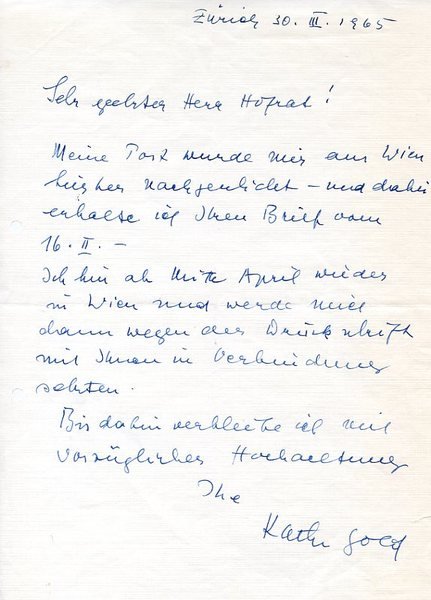 Zürich 30. III. 1965
Sehr geehrter Herr Hofrat!
Meine Post wurde mir aus Wien
hierher nachgeschickt – und daher
erhalte ich Ihren Brief vom
16. II. –
Ich bin ab Mitte April wieder
in Wien und werde mich
dann wegen der Druckschrift
mit Ihnen in Verbindung
setzen.
Bis dahin verbleibe ich mit
vorzüglicher Hochachtung
Ihre
Käthe Gold